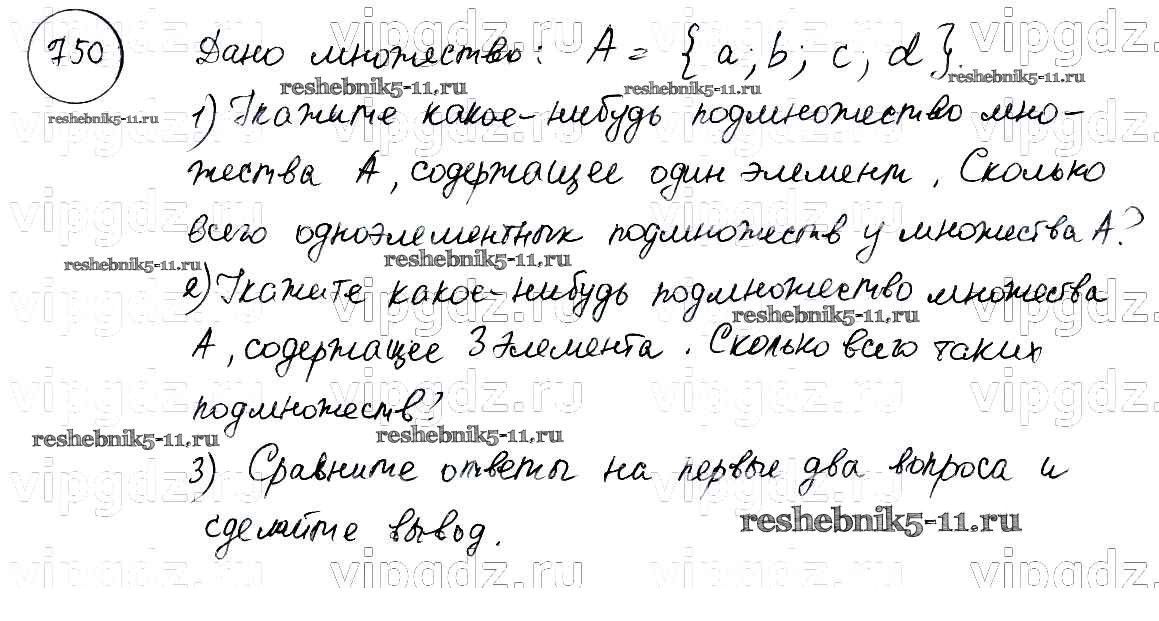 750 Дано множество: A = {a; b; c; d}.
1) Укажите какое-нибудь подмножество мно-
жества A, содержащее один элемент. Сколько
всего одноэлементных подмножеств у множества A?
2) Укажите какое-нибудь подмножество множества
A, содержащее 3 элемента. Сколько всего таких
подмножеств?
3) Сравните ответы на первые два вопроса и
сделайте вывод.
vipgdz.ru
reshebnik5-11.ru